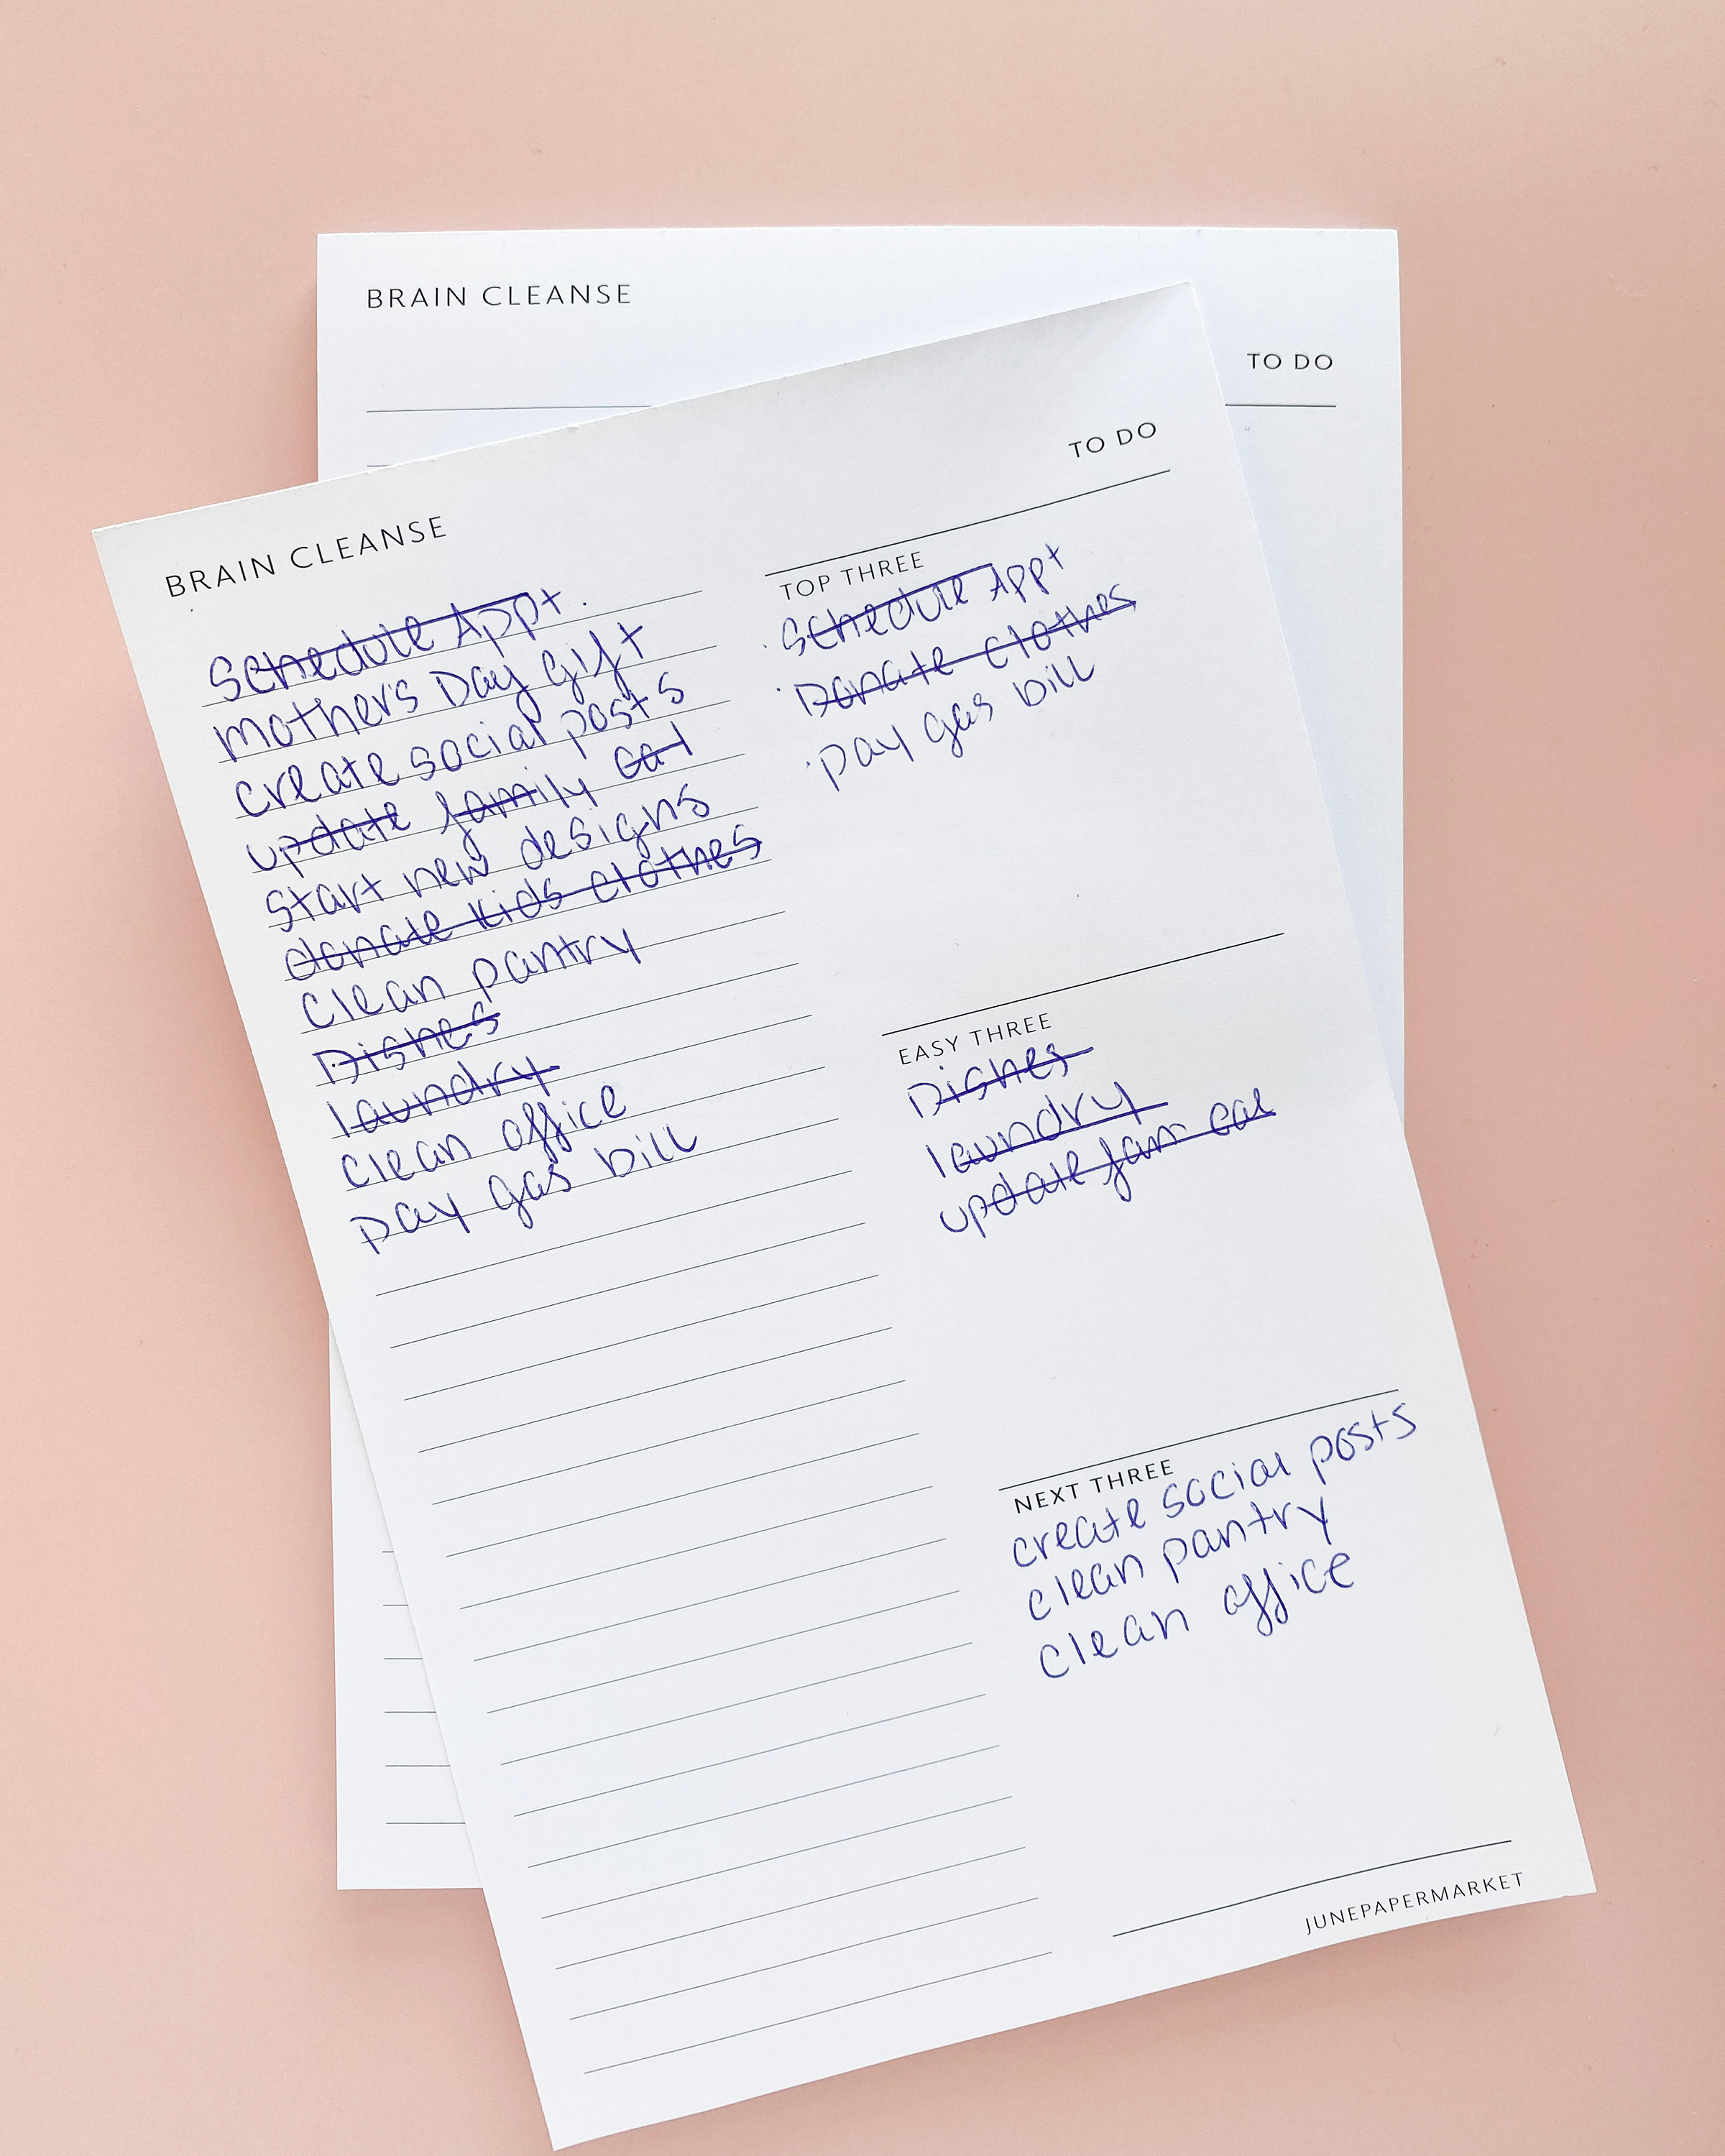 BRAIN CLEANSE
TO DO
BRAIN CLEANSE
Schedule Appt.
mother's Day gift
create social posts
update family cal
start new designs
donate kids clothes
clean pantry
Dishes
laundry
clean office
pay gas bill
TO DO
TOP THREE
· Schedule Appt
· Donate clothes
· pay gas bill
EASY THREE
Dishes
laundry
update fam cal
NEXT THREE
create social posts
clean pantry
clean office
JUNEPAPERMARKET